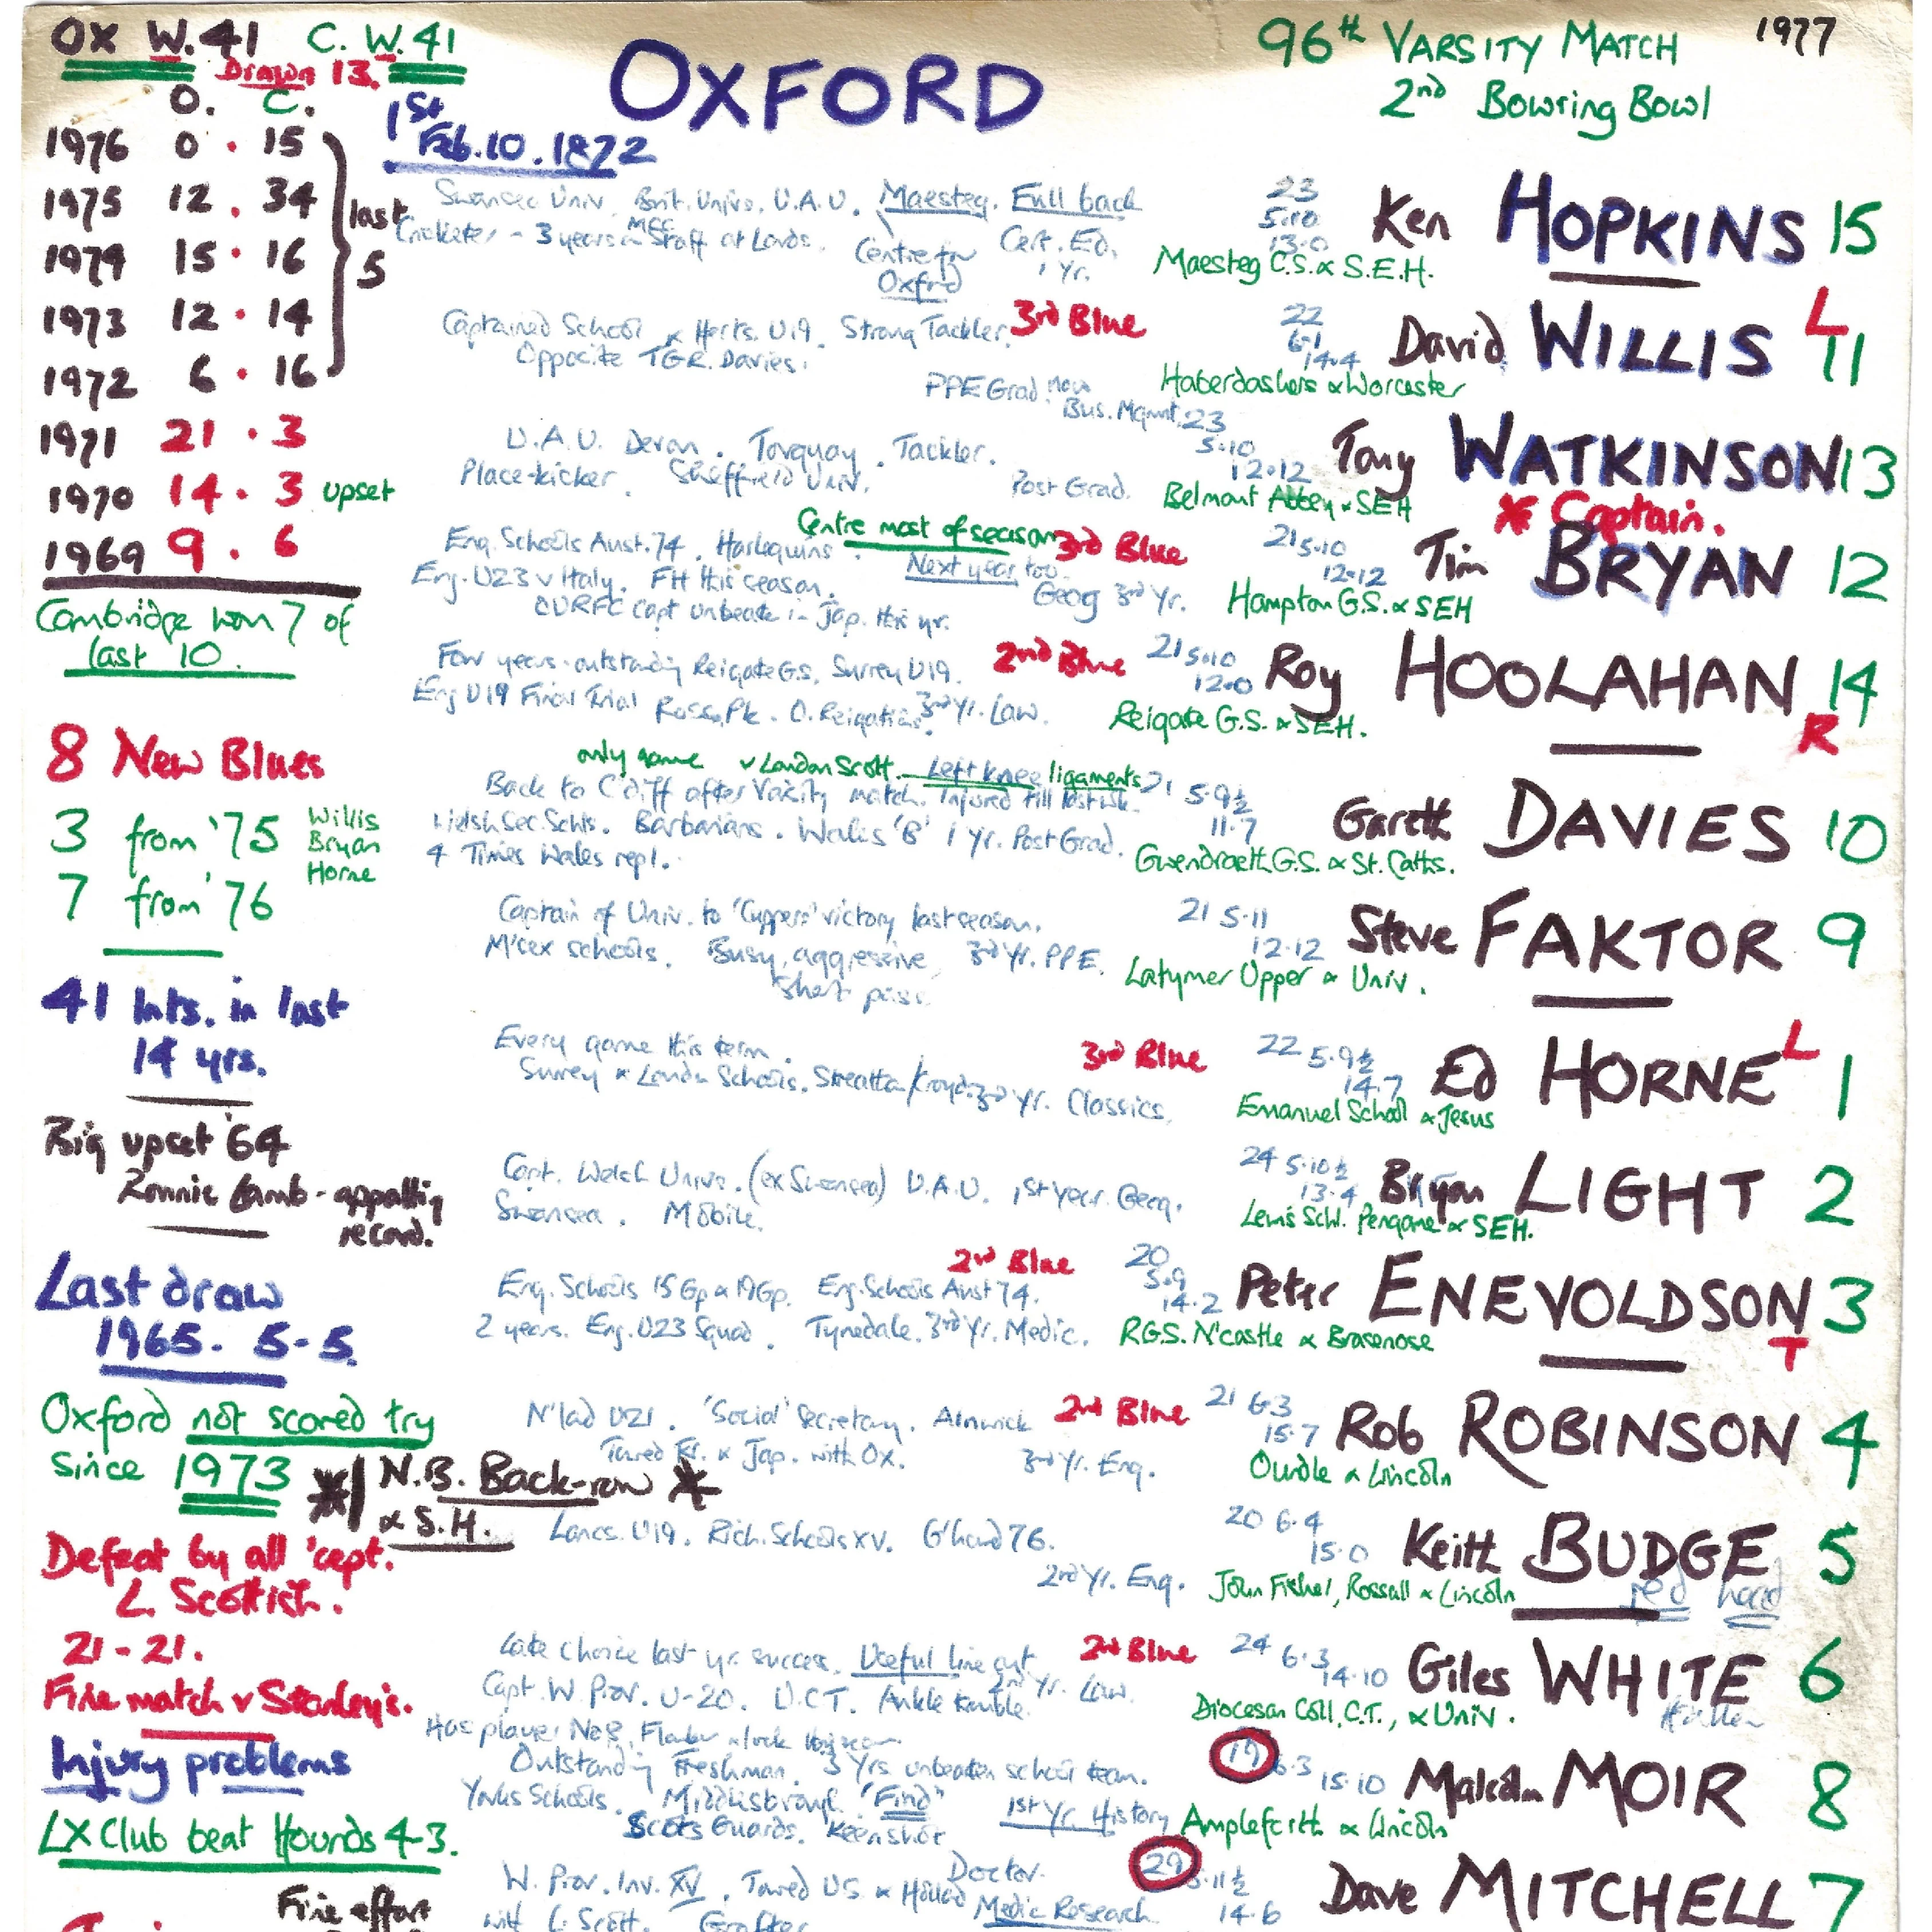 OX W. 41 C. W. 41
Drawn 13.
O. C.
1976 0 . 15
1975 12 . 34
1974 15 . 16
1973 12 . 14
1972 6 . 16
last
5
1971 21 . 3
1970 14 . 3 upset
1969 9 . 6
Cambridge won 7 of
last 10.
8 New Blues
3 from '75 Willis
Bryan
Horne
7 from '76
41 Ints. in last
14 yrs.
Big upset '64
Ronnie Lamb - appalling
record.
Last draw
1965. 5-5.
Oxford not scored try
Since 1973
N.B. Back-row
& S.H.
Defeat by all 'cept.
L. Scottish.
21-21.
Fine match v Stanley's.
Injury problems
LX Club beat Hounds 4-3.
Fine effort
OXFORD
1st
Feb. 10. 1872
96th VARSITY MATCH 1977
2nd Bowring Bowl
Swansea Univ. Brit. Univs. U.A.U. Maesteg. Full back
Cricketer - 3 years on MCC Staff at Lords.
Centre for
Oxford
Cert. Ed.
1 Yr.
23
5.10
13.0
Maesteg C.S. & S.E.H.
Ken HOPKINS 15
Captained School & Herts. U19. Strong Tackler. 3rd Blue
Opposite TGR. Davies.
PPE Grad. now
Bus. Mgmnt.
22
6.1
14.4
Haberdashers & Worcester
David WILLIS L 11
U.A.U. Devon. Torquay. Tackler.
Place-kicker. Sheffield Univ. Post Grad.
23
5.10
12.12
Belmont Abbey & SEH
Tony WATKINSON 13
Captain.
Centre most of season 3rd Blue
Eng. Schools Aust. 74. Harlequins.
Next year too.
Eng. U23 v Italy. FH this season.
OURFC Capt unbeaten in Jap. this yr.
Geog 3rd Yr.
21 5.10
12.12
Hampton G.S. & SEH
Tim BRYAN 12
Few years outstanding Reigate G.S. Surrey U19. 2nd Blue
Eng U19 Final Trial Ross. Pk. O. Reigatians. 3rd Yr. Law.
21 5.10
12.0
Reigate G.S. & SEH.
Roy HOOLAHAN 14
R
only game v London Scott. Left knee ligaments
Back to C'diff after Varsity match. Injured till last wk.
Welsh Sec. Schls. Barbarians. Wales 'B' 1 yr. Post Grad.
4 Times Wales repl.
21 5.9½
11.7
Gwendraeth G.S. & St. Catts.
Gareth DAVIES 10
Captain of Univ. to 'Cuppers' victory last season.
M'sex schools. Busy, aggressive 3rd Yr. PPE.
Short pass.
21 5.11
12.12
Latymer Upper & Univ.
Steve FAKTOR 9
Every game this term. 3rd Blue
Surrey & London Schools. Streatham/Croyd. 3rd Yr. Classics.
22 5.9½
14.7
Emanuel School & Jesus
Ed HORNE L 1
Capt. Welsh Univs. (ex Swansea) U.A.U. 1st year. Geog.
Swansea. Mobile.
24 5.10½
13.4
Lewis Schl. Pengam & SEH.
Bryan LIGHT 2
2nd Blue
Eng. Schools 15 Gp & 19 Gp. Eng. Schools Aust 74.
2 years. Eng. U23 Squad. Tynedale. 3rd Yr. Medic.
20
5.9
14.2
RGS. N'castle & Brasenose
Peter ENEVOLDSON 3
T
N'lad U21. 'Social' Secretary. Alnwick 2nd Blue
Toured Fr. & Jap. with Ox. 3rd Yr. Eng.
21 6.3
15.7
Oundle & Lincoln
Rob ROBINSON 4
Lancs. U19. Rich. Schools XV. G'hound 76.
2nd Yr. Eng.
20 6.4
15.0
John Fisher, Rossall & Lincoln
Keith BUDGE 5
red head
Late choice last yr. success. Useful line out 2nd Blue
Capt. W. Prov. U-20. U.C.T. Ankle trouble. 2nd Yr. Law.
Has played No 8, Flanker & lock this season
24 6.3
14.10
Diocesan Coll, C.T., & Univ.
Giles WHITE 6
Outstanding Freshman. 3 Yrs unbeaten school team.
Yorks Schools. Middlesbrough. 'Find' 1st Yr. History
Scots Guards. Keen shot
19 6.3
15.10
Ampleforth & Lincoln
Malcolm MOIR 8
W. Prov. Inv. XV. Toured US & Holland Doctor.
with L. Scott. Grafter Medic Research
29 5.11½
14.6
Dave MITCHELL 7